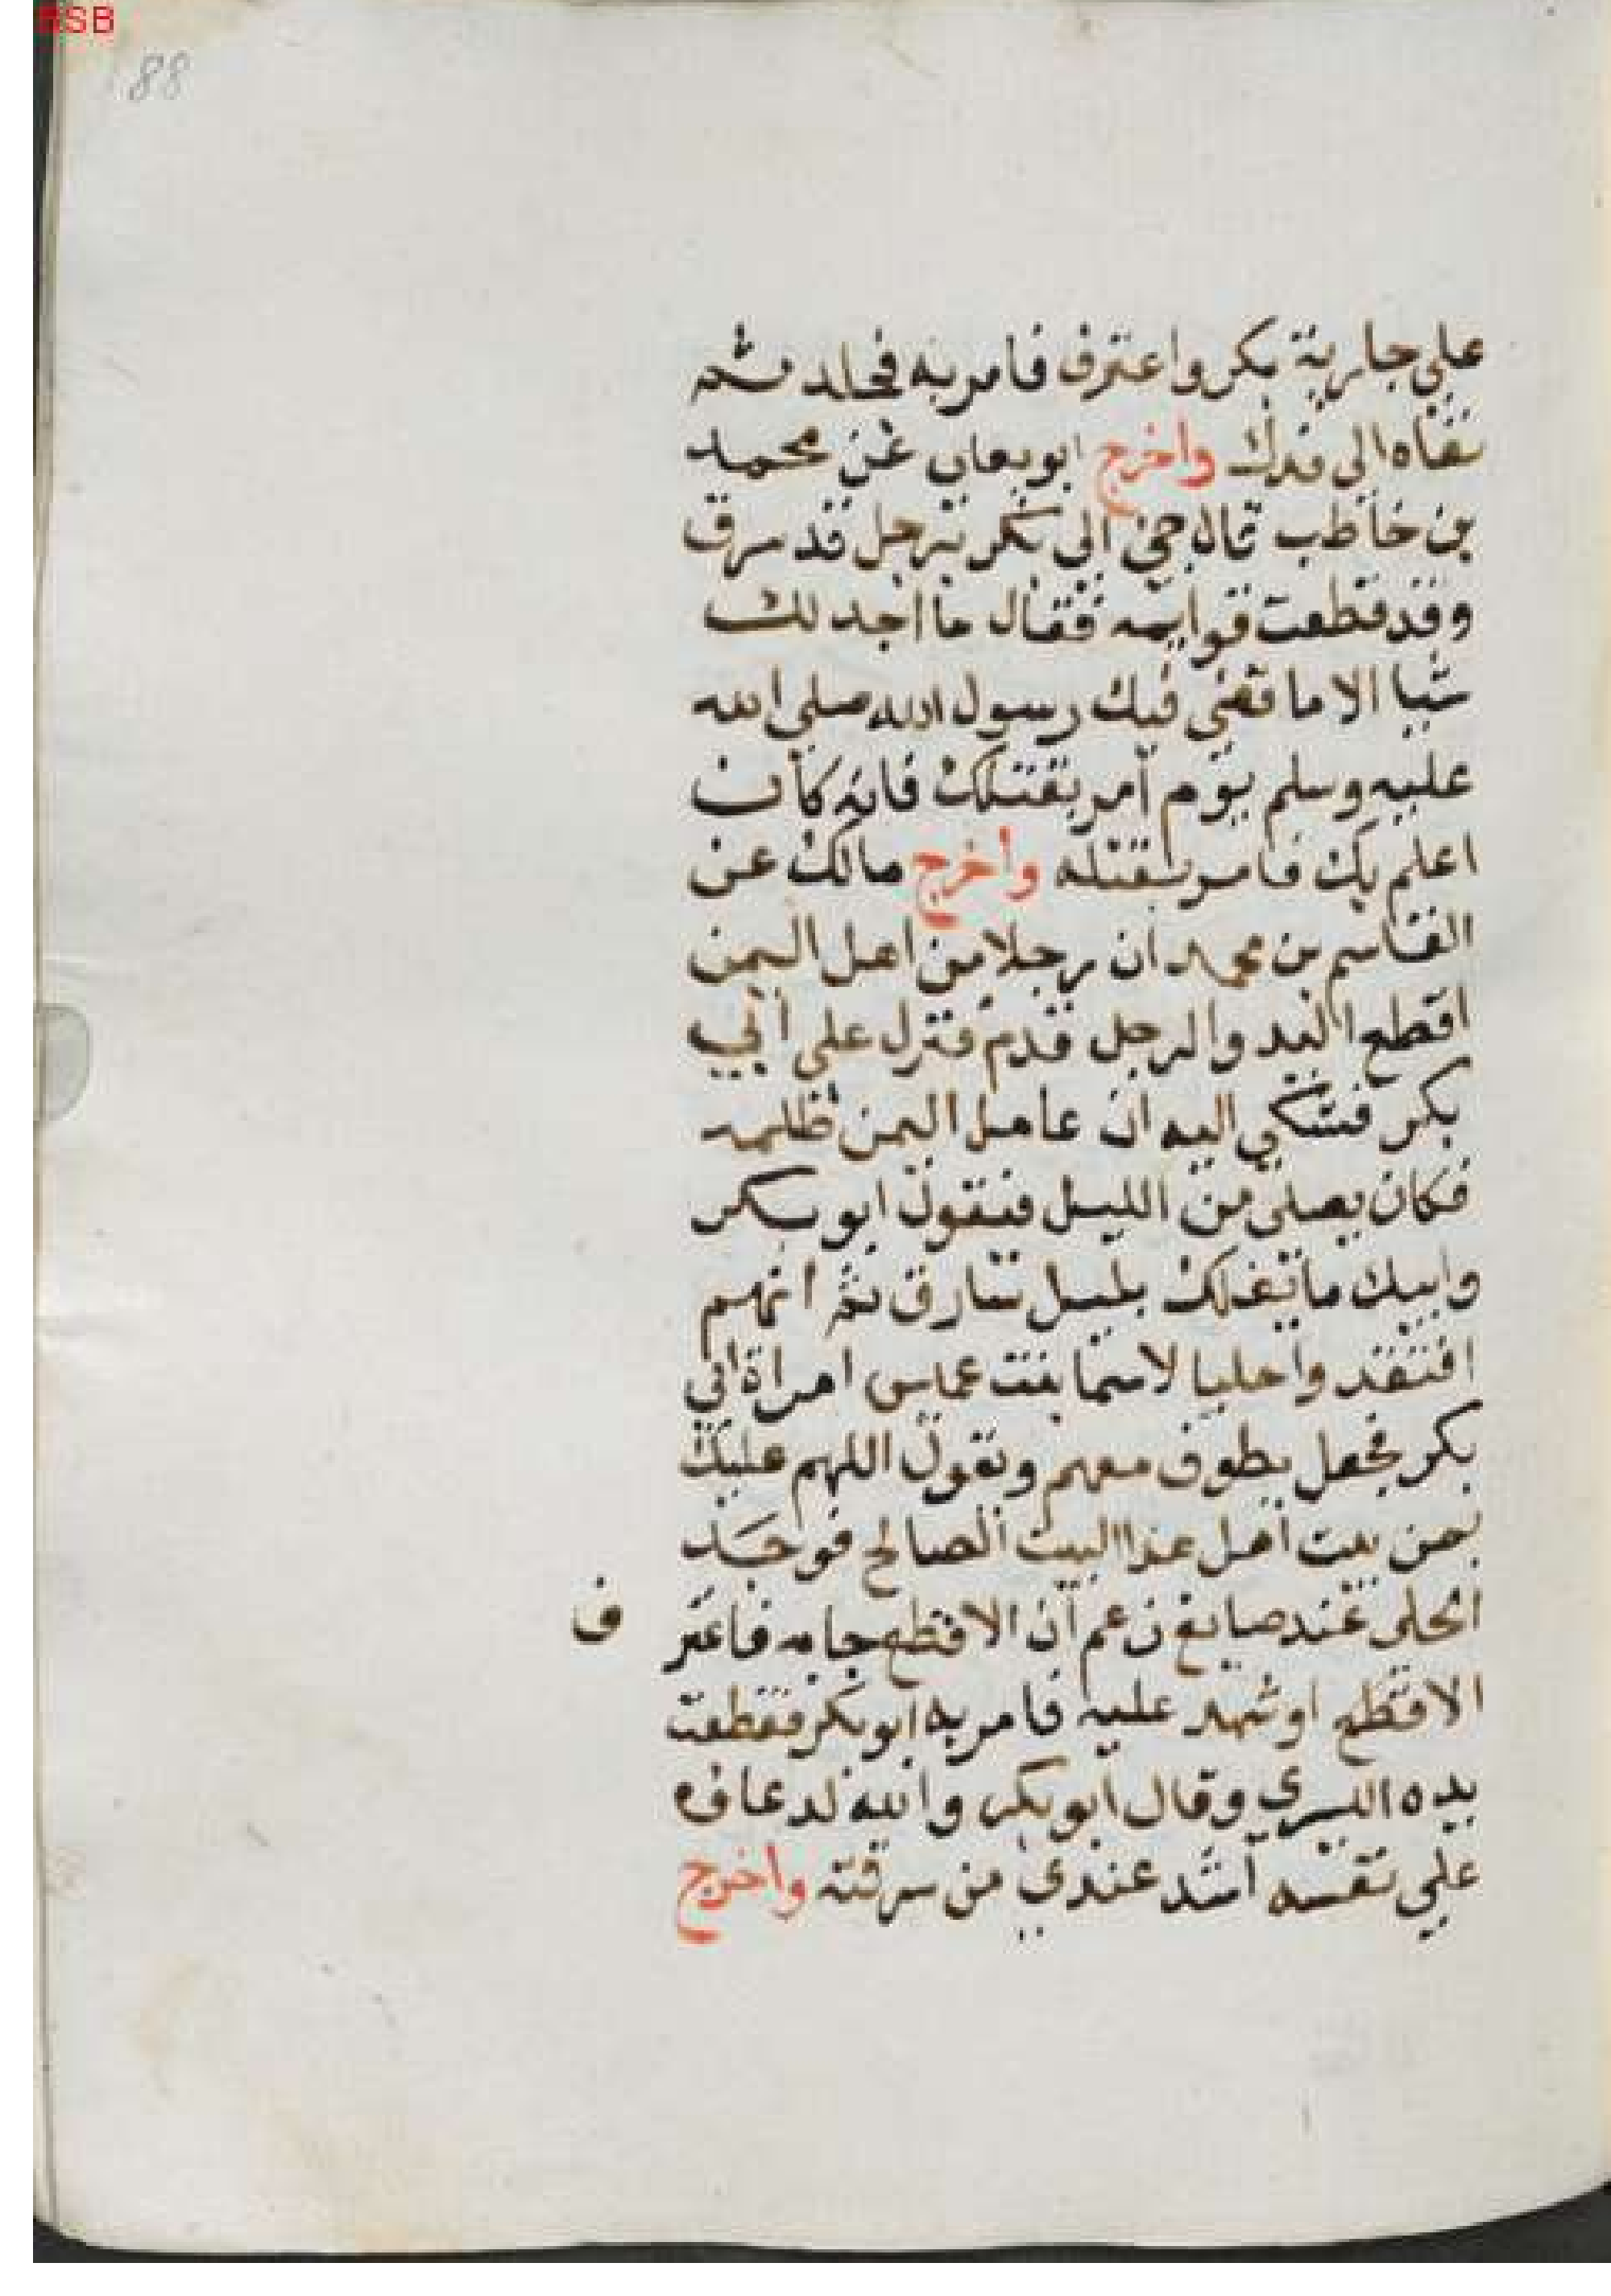 BSB
88
علي جارية بكر واعترف فامر به فجلد ثم
نفاه الي فدك واخرج ابو يعلي عن محمد
بن خاطب قال جي الي بكر برجل قد سرق
وقد قطعت قوايمه فقال ما اجد لك
شيا الا ما قضي فيك رسول الله صلي الله
عليه وسلم يوم امر بقتلك فانه كان
اعلم بك فامر بقتله واخرج مالك عن
القاسم بن محمد ان رجلا من اهل اليمن
اقطع اليد والرجل قدم فنزل علي ابي
بكر فشكي اليه ان عامل اليمن ظلمه
فكان يصلي من الليل فيقول ابو بكر
وابيك ما ليلك بليل سارق ثم انهم
افتقدوا حليا لاسما بنت عميس امراة ابي
بكر فجعل يطوف معهم ويقول اللهم عليك
بمن بيت اهل هذا البيت الصالح فوجد
الحلي عند صايغ زعم ان الاقطع جابه فاعتر ف
الاقطع او شهد عليه فامر به ابو بكر فقطعت
يده اليسري وقال ابو بكر والله لدعاوه
علي نفسه اشد عندي من سرقته واخرج